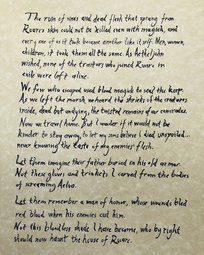 The ruin of vines and dead flesh that sprang from
Ruarc's skin could not be killed even with magick, and
every one of us it took became another like itself. Men, women,
children, it took them all the same. As Aetheljohn
wished, none of the creators who joined Ruarc in
exile were left alive.
We few who escaped used blood magick to seal the keep.
As we left the marsh, we heard the shrieks of the creatures
inside, dead but undying, the twisted remains of our comrades.
Now we travel home. But I wonder if it would not be
kinder to stay away, to let my sons believe I died unspoiled...
never knowing the taste of my enemies flesh.
Let them imagine their father buried in his old armor.
Not these gloves and trinkets I carved from the bodies
of screaming Aelva.
Let them remember a man of honor, whose wounds bled
red blood when his enemies cut him.
Not this bloodless shade I have become, who by right
should now haunt the house of Ruarc.